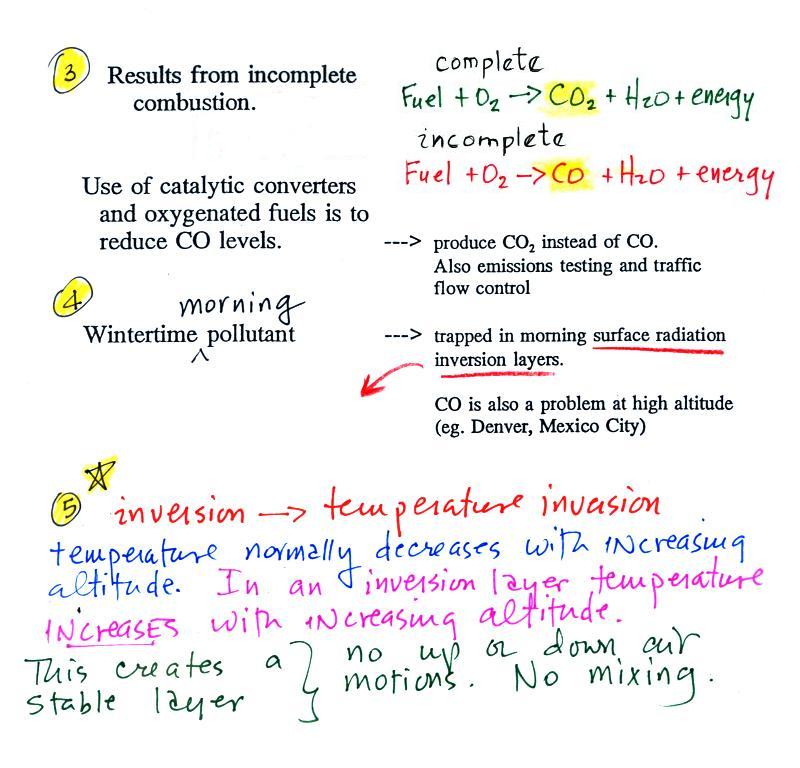 3 Results from incomplete
combustion.
complete
Fuel + O₂ → CO₂ + H₂O + energy
incomplete
Fuel + O₂ → CO + H₂O + energy
Use of catalytic converters
and oxygenated fuels is to
reduce CO levels.
---> produce CO₂ instead of CO.
Also emissions testing and traffic
flow control
4 morning
Wintertime ^ pollutant
---> trapped in morning surface radiation
inversion layers.
CO is also a problem at high altitude
(eg. Denver, Mexico City)
5 inversion → temperature inversion
temperature normally decreases with INcreasing
altitude. In an inversion layer temperature
INcreasES with INcreasing altitude.
This creates a } no up or down air
stable layer } motions. No mixing.